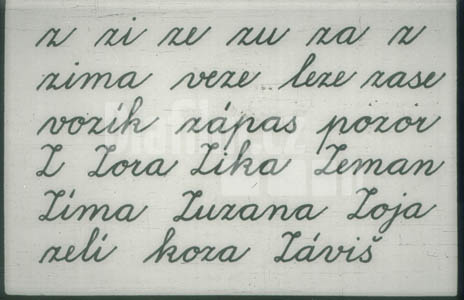 z zi ze zu za z
zima veze leze zase
vozík zápas pozor
Z Zora Zika Zeman
Zíma Zuzana Zoja
zelí koza Záviš